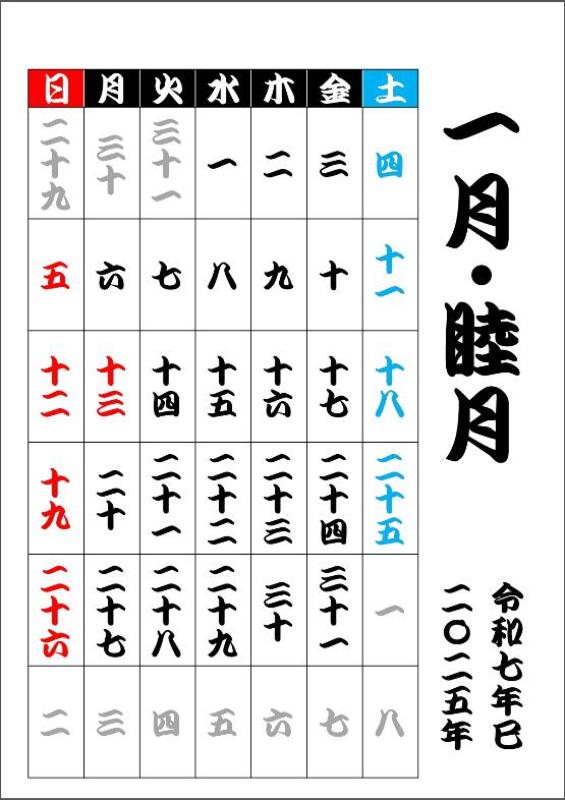 一月・睦月
令和七年巳
二〇二五年
日 月 火 水 木 金 土
二十九 三十 三十一 一 二 三 四
五 六 七 八 九 十 十一
十二 十三 十四 十五 十六 十七 十八
十九 二十 二十一 二十二 二十三 二十四 二十五
二十六 二十七 二十八 二十九 三十 三十一 一
二 三 四 五 六 七 八